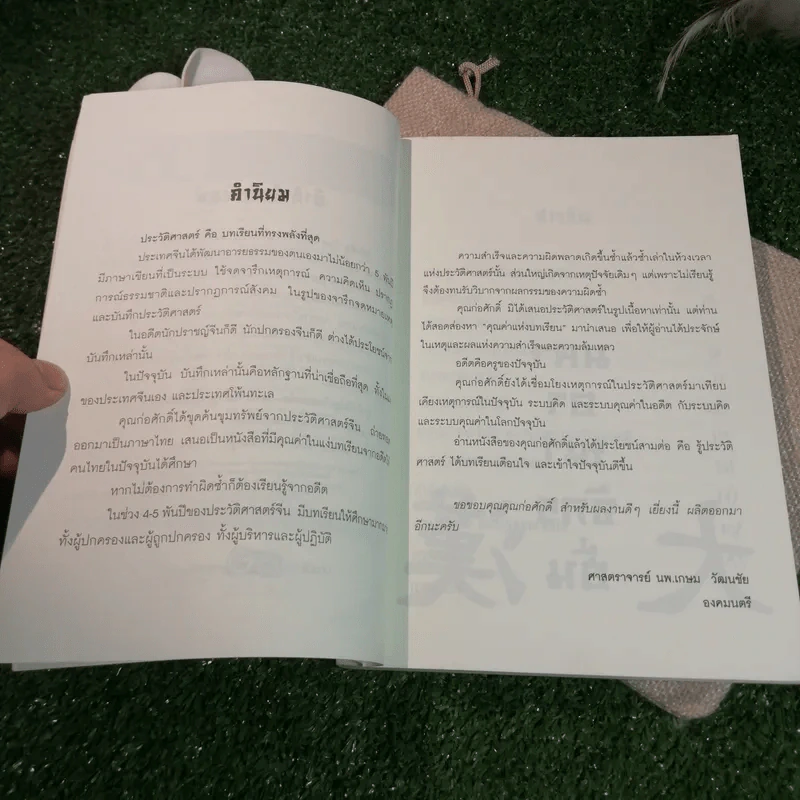 คำนิยม
ประวัติศาสตร์ คือ บทเรียนที่ทรงพลังที่สุด
ประเทศจีนได้พัฒนาอารยธรรมของตนเองมาไม่น้อยกว่า 5 พันปี
มีภาษาเขียนที่เป็นระบบ ใช้จดจารึกเหตุการณ์ ความคิดเห็น
การณ์ธรรมชาติและปรากฏการณ์สังคม ในรูปของจารึกจดหมายเหตุ
และบันทึกประวัติศาสตร์
ในอดีตนักปราชญ์จีนก็ดี นักปกครองจีนก็ดี ต่างได้ประโยชน์จาก
บันทึกเหล่านั้น
ในปัจจุบัน บันทึกเหล่านั้นคือหลักฐานที่น่าเชื่อถือที่สุด ทั้งใน
ของประเทศจีนเอง และประเทศโพ้นทะเล
คุณก่อศักดิ์ได้ขุดค้นขุมทรัพย์จากประวัติศาสตร์จีน ถ่ายทอด
ออกมาเป็นภาษาไทย เสนอเป็นหนังสือที่มีคุณค่าในแง่บทเรียนจากอดีต
คนไทยในปัจจุบันได้ศึกษา
หากไม่ต้องการทำผิดซ้ำก็ต้องเรียนรู้จากอดีต
ในช่วง 4-5 พันปีของประวัติศาสตร์จีน มีบทเรียนให้ศึกษามากมาย
ทั้งผู้ปกครองและผู้ถูกปกครอง ทั้งผู้บริหารและผู้ปฏิบัติ
ความสำเร็จและความผิดพลาดเกิดขึ้นซ้ำแล้วซ้ำเล่าในห้วงเวลา
แห่งประวัติศาสตร์นั้น ส่วนใหญ่เกิดจากเหตุปัจจัยเดิมๆ แต่เพราะไม่เรียนรู้
จึงต้องทนรับวิบากจากผลกรรมของความผิดซ้ำ
คุณก่อศักดิ์ มิได้เสนอประวัติศาสตร์ในรูปเนื้อหาเท่านั้น แต่ท่าน
ได้สอดส่องหา "คุณค่าแห่งบทเรียน" มานำเสนอ เพื่อให้ผู้อ่านได้ประจักษ์
ในเหตุและผลแห่งความสำเร็จและความล้มเหลว
อดีตคือครูของปัจจุบัน
คุณก่อศักดิ์ยังได้เชื่อมโยงเหตุการณ์ในประวัติศาสตร์มาเทียบ
เคียงเหตุการณ์ในปัจจุบัน ระบบคิด และระบบคุณค่าในอดีต กับระบบคิด
และระบบคุณค่าในโลกปัจจุบัน
อ่านหนังสือของคุณก่อศักดิ์แล้วได้ประโยชน์สามต่อ คือ รู้ประวัติ
ศาสตร์ ได้บทเรียนเตือนใจ และเข้าใจปัจจุบันดีขึ้น
ขอขอบคุณคุณก่อศักดิ์ สำหรับผลงานดีๆ เยี่ยงนี้ ผลิตออกมา
อีกนะครับ
ศาสตราจารย์ นพ.เกษม วัฒนชัย
องคมนตรี